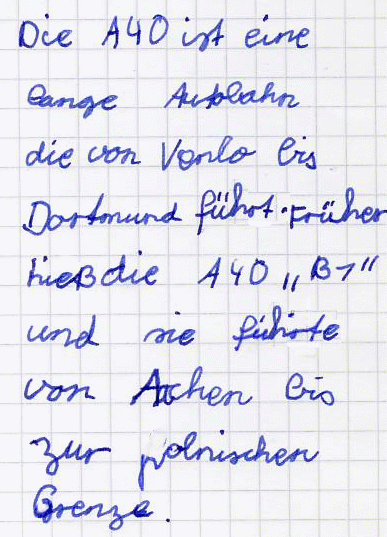 Die A40 ist eine
lange Autobahn
die von Venlo bis
Dortmund führt. Früher
hieß die A40 „B1"
und sie führte
von Aachen bis
zur polnischen
Grenze.